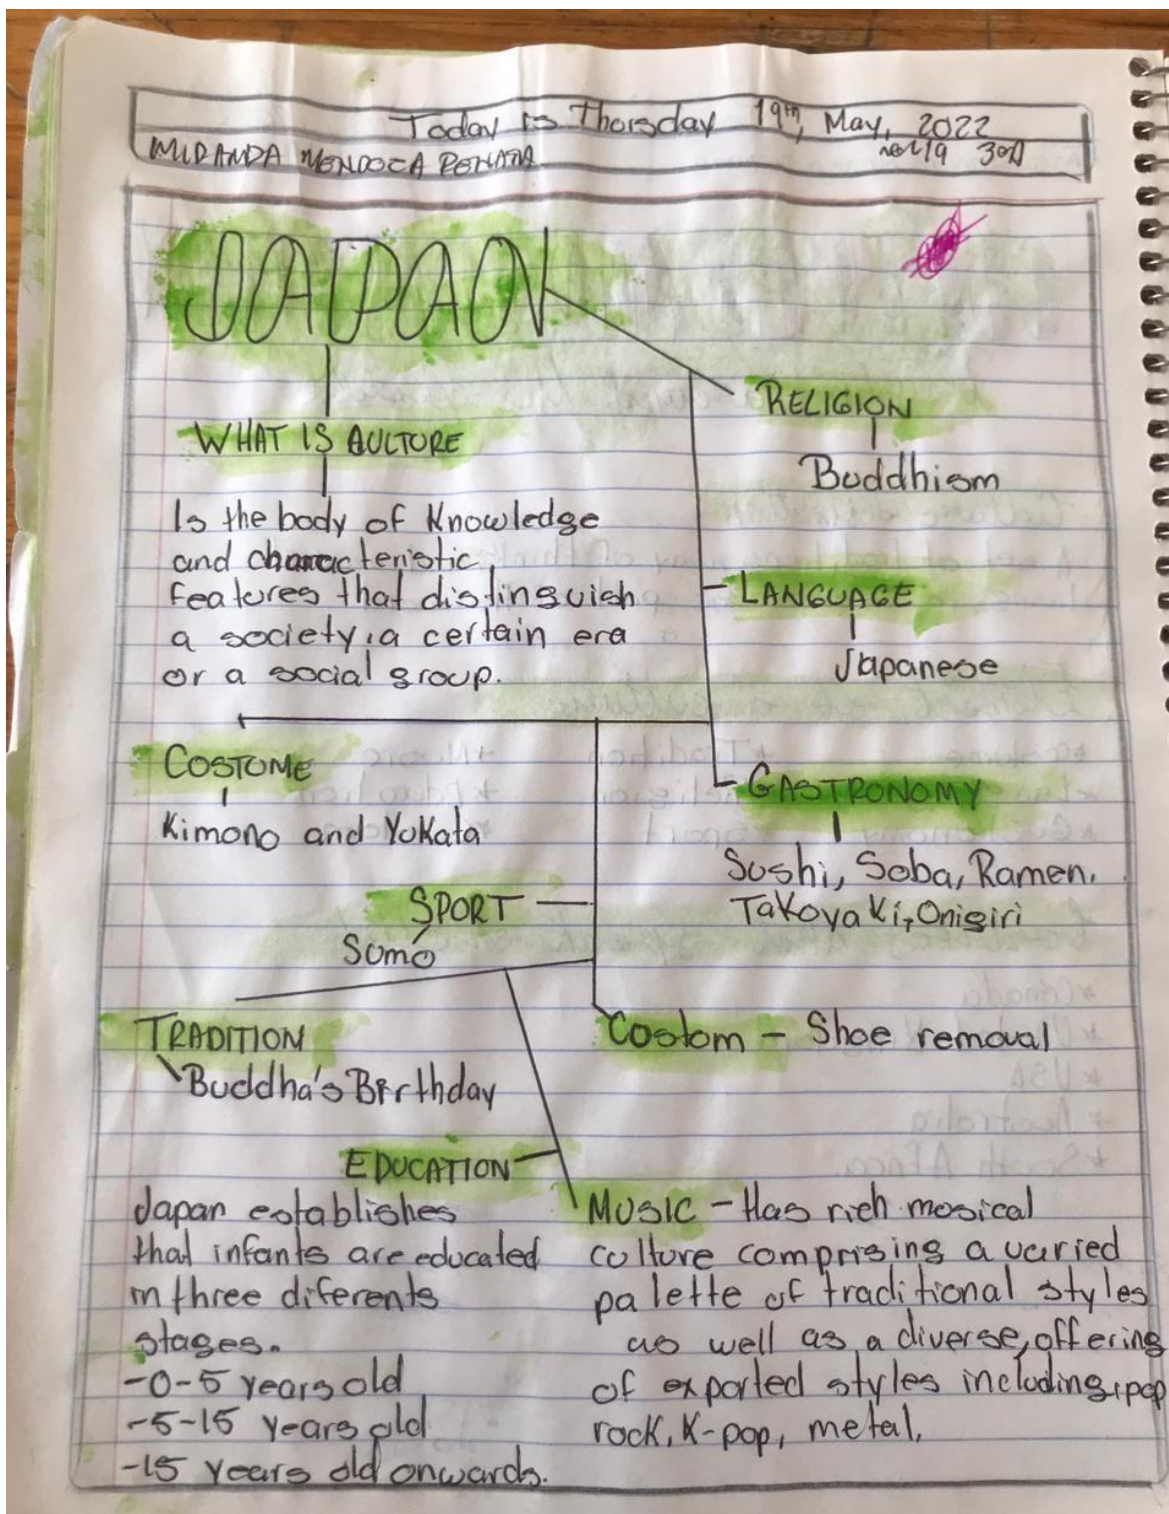 Today is Thorsday 19th, May, 2022
MIRANDA MENDOCA RENATA
JAPAN
RELIGION
Buddhism
WHAT IS CULTURE
Is the body of Knowledge
and characteristic
features that distinguish
a society, a certain era
or a social group.
LANGUAGE
Japanese
COSTUME
Kimono and YuKata
GASTRONOMY
Sushi, Soba, Ramen,
TaKoyaKi, Onigiri
SPORT
Sumó
TRADITION
Buddha's Birthday
Costom - Shoe removal
EDUCATION
Japan establishes
that infants are educated
in three diferents
stages.
-0-5 years old
-5-15 years old
-15 years old onwards.
MUSIC - Has rich mosical
culture comprising a varied
palette of traditional styles
as well as a diverse, offering
of exported styles including, pop
rock, K-pop, metal,